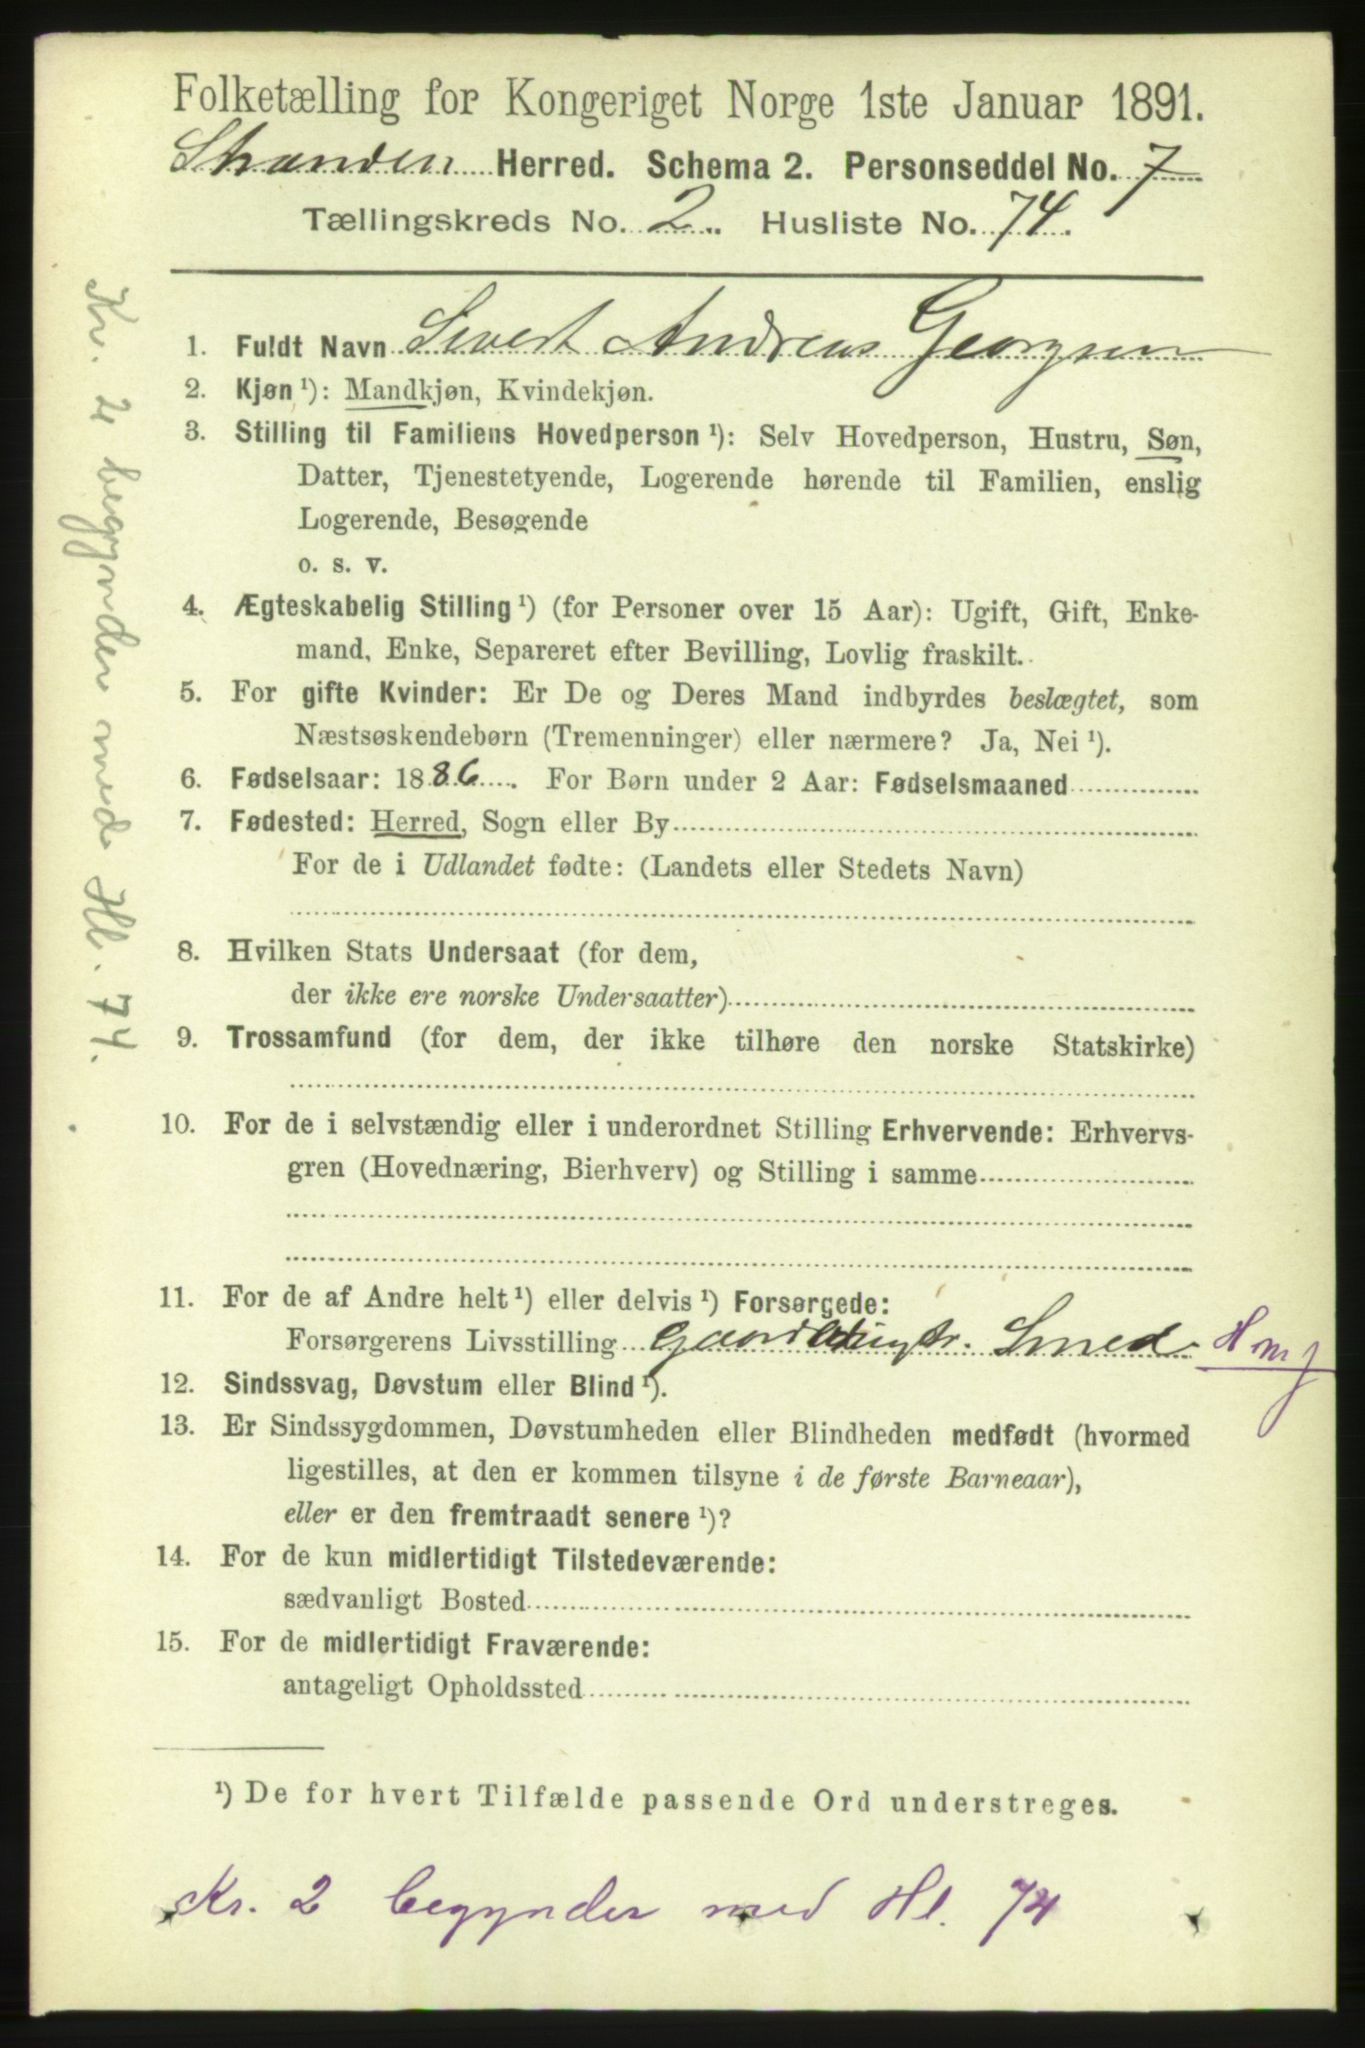 Folketælling for Kongeriget Norge 1ste Januar 1891.
Stranden Herred. Schema 2. Personseddel No. 7
Tællingskreds No. 2. Husliste No. 74.
1. Fuldt Navn Sivert Andreas Georgsen
2. Kjøn ¹): Mandkjøn, Kvindekjøn.
3. Stilling til Familiens Hovedperson ¹): Selv Hovedperson, Hustru, Søn,
Datter, Tjenestetyende, Logerende hørende til Familien, enslig
Logerende, Besøgende
o. s. v.
4. Ægteskabelig Stilling ¹) (for Personer over 15 Aar): Ugift, Gift, Enke-
mand, Enke, Separeret efter Bevilling, Lovlig fraskilt.
5. For gifte Kvinder: Er De og Deres Mand indbyrdes beslægtet, som
Næstsøskendebørn (Tremenninger) eller nærmere? Ja, Nei ¹).
6. Fødselsaar: 1886. For Børn under 2 Aar: Fødselsmaaned
7. Fødested: Herred, Sogn eller By
For de i Udlandet fødte: (Landets eller Stedets Navn)
8. Hvilken Stats Undersaat (for dem,
der ikke ere norske Undersaatter)
9. Trossamfund (for dem, der ikke tilhøre den norske Statskirke)
10. For de i selvstændig eller i underordnet Stilling Erhvervende: Erhvervs-
gren (Hovednæring, Bierhverv) og Stilling i samme
11. For de af Andre helt ¹) eller delvis ¹) Forsørgede:
Forsørgerens Livsstilling Smed
12. Sindssvag, Døvstum eller Blind ¹).
13. Er Sindssygdommen, Døvstumheden eller Blindheden medfødt (hvormed
ligestilles, at den er kommen tilsyne i de første Barneaar),
eller er den fremtraadt senere ¹)?
14. For de kun midlertidigt Tilstedeværende:
sædvanligt Bosted
15. For de midlertidigt Fraværende:
antageligt Opholdssted
¹) De for hvert Tilfælde passende Ord understreges.
Kr. 2 begynder med Hl. 74
Kr. 2 begynder med Hl. 74.